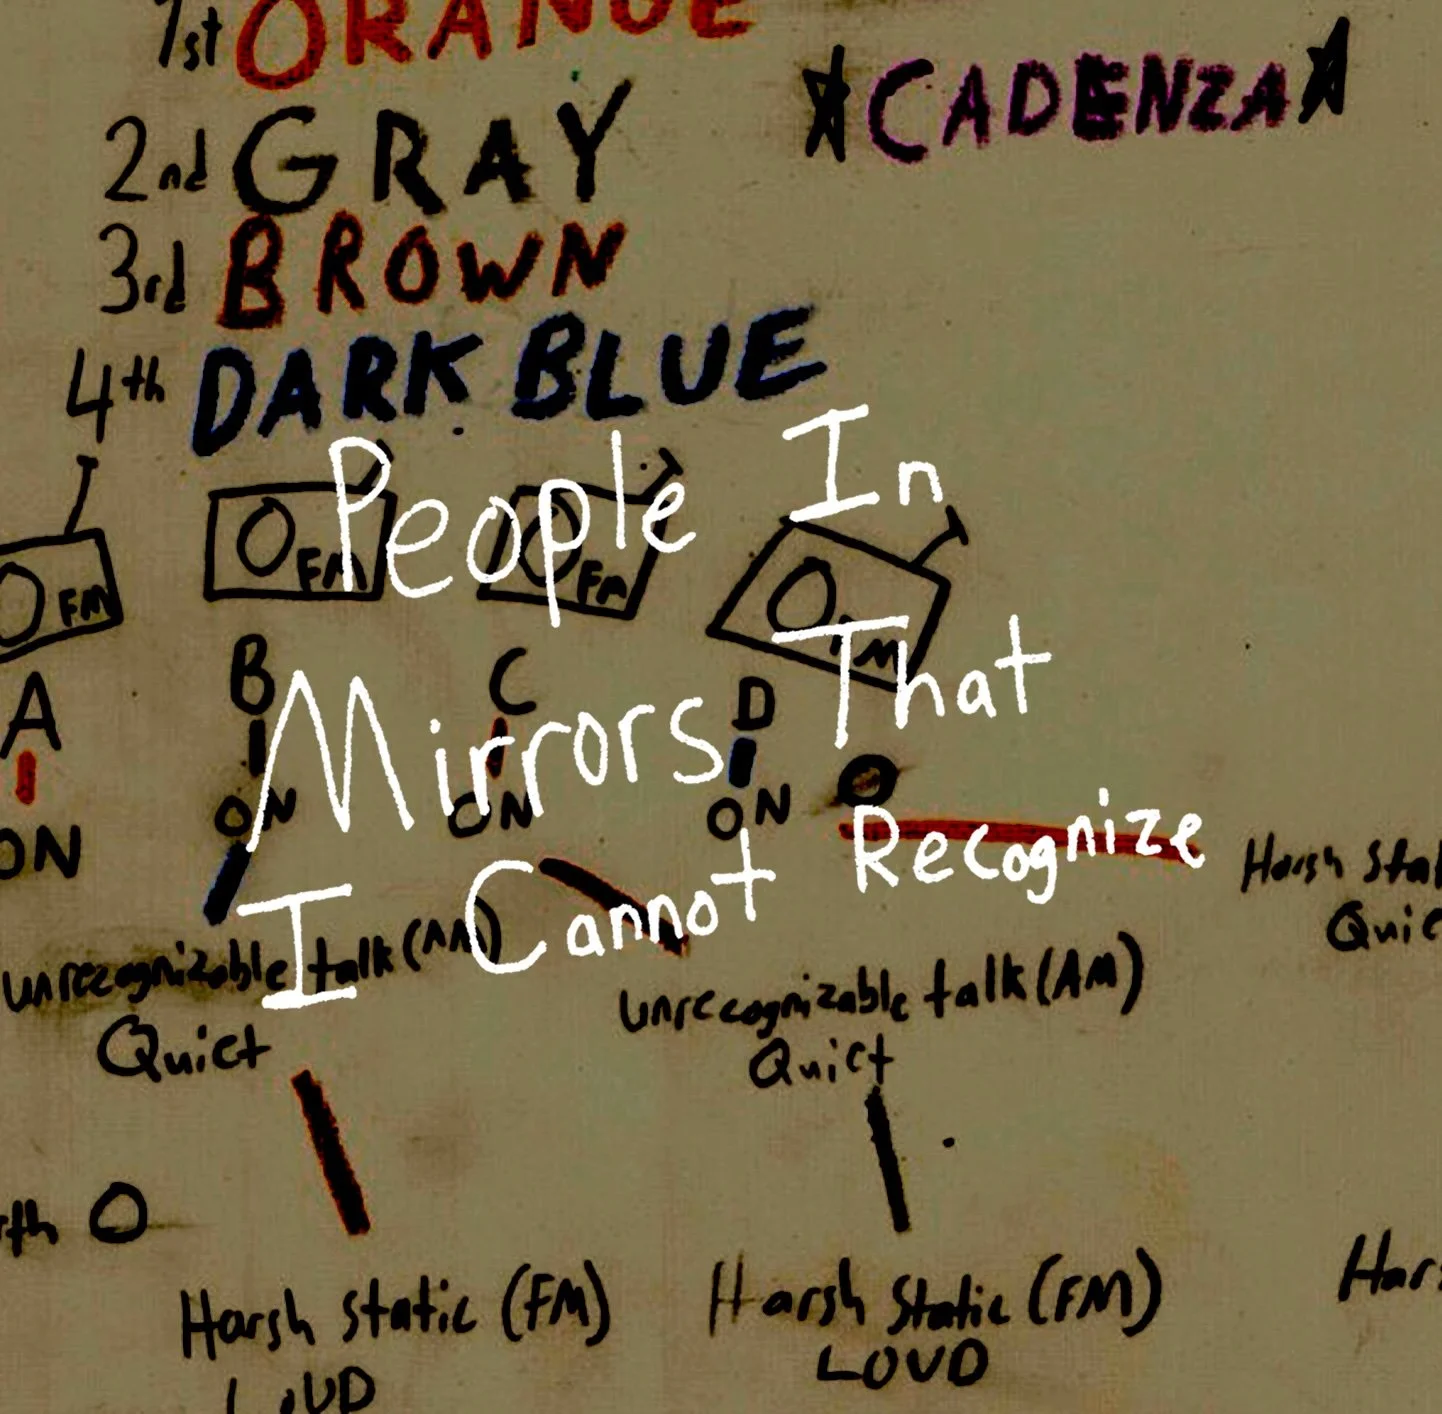 1st ORANGE
2nd GRAY
3rd BROWN
4th DARK BLUE
*CADENZA*
FM FM FM FM
A B C D
ON ON ON ON
People In
Mirrors That
I Cannot Recognize
unrecognizable talk (AM)
Quiet
unrecognizable talk (AM)
Quiet
Harsh
Harsh static (FM)
LOUD
Harsh static (FM)
LOUD